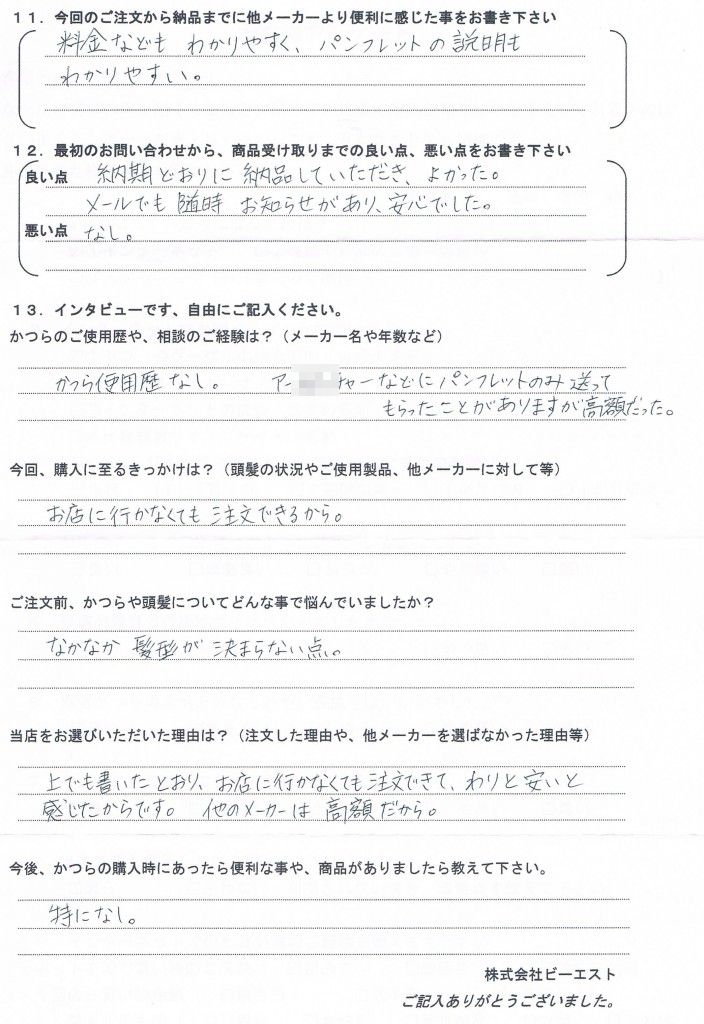 １１．今回のご注文から納品までに他メーカーより便利に感じた事をお書き下さい
料金なども わかりやすく、パンフレットの説明も
わかりやすい。
１２．最初のお問い合わせから、商品受け取りまでの良い点、悪い点をお書き下さい
良い点 納期どおりに 納品していただき、よかった。
メールでも 随時 お知らせがあり、安心でした。
悪い点 なし。
１３．インタビューです、自由にご記入ください。
かつらのご使用歴や、相談のご経験は？（メーカー名や年数など）
かつら使用歴 なし。 アー チャーなどに パンフレットのみ 送って
もらったことがありますが 高額だった。
今回、購入に至るきっかけは？（頭髪の状況やご使用製品、他メーカーに対して等）
お店に行かなくても 注文できるから。
ご注文前、かつらや頭髪についてどんな事で悩んでいましたか？
なかなか 髪型が 決まらない点。
当店をお選びいただいた理由は？（注文した理由や、他メーカーを選ばなかった理由等）
上でも書いたとおり、お店に行かなくても注文できて、わりと安いと
感じたからです。 他のメーカーは 高額だから。
今後、かつらの購入時にあったら便利な事や、商品がありましたら教えて下さい。
特になし。
株式会社ビーエスト
ご記入ありがとうございました。